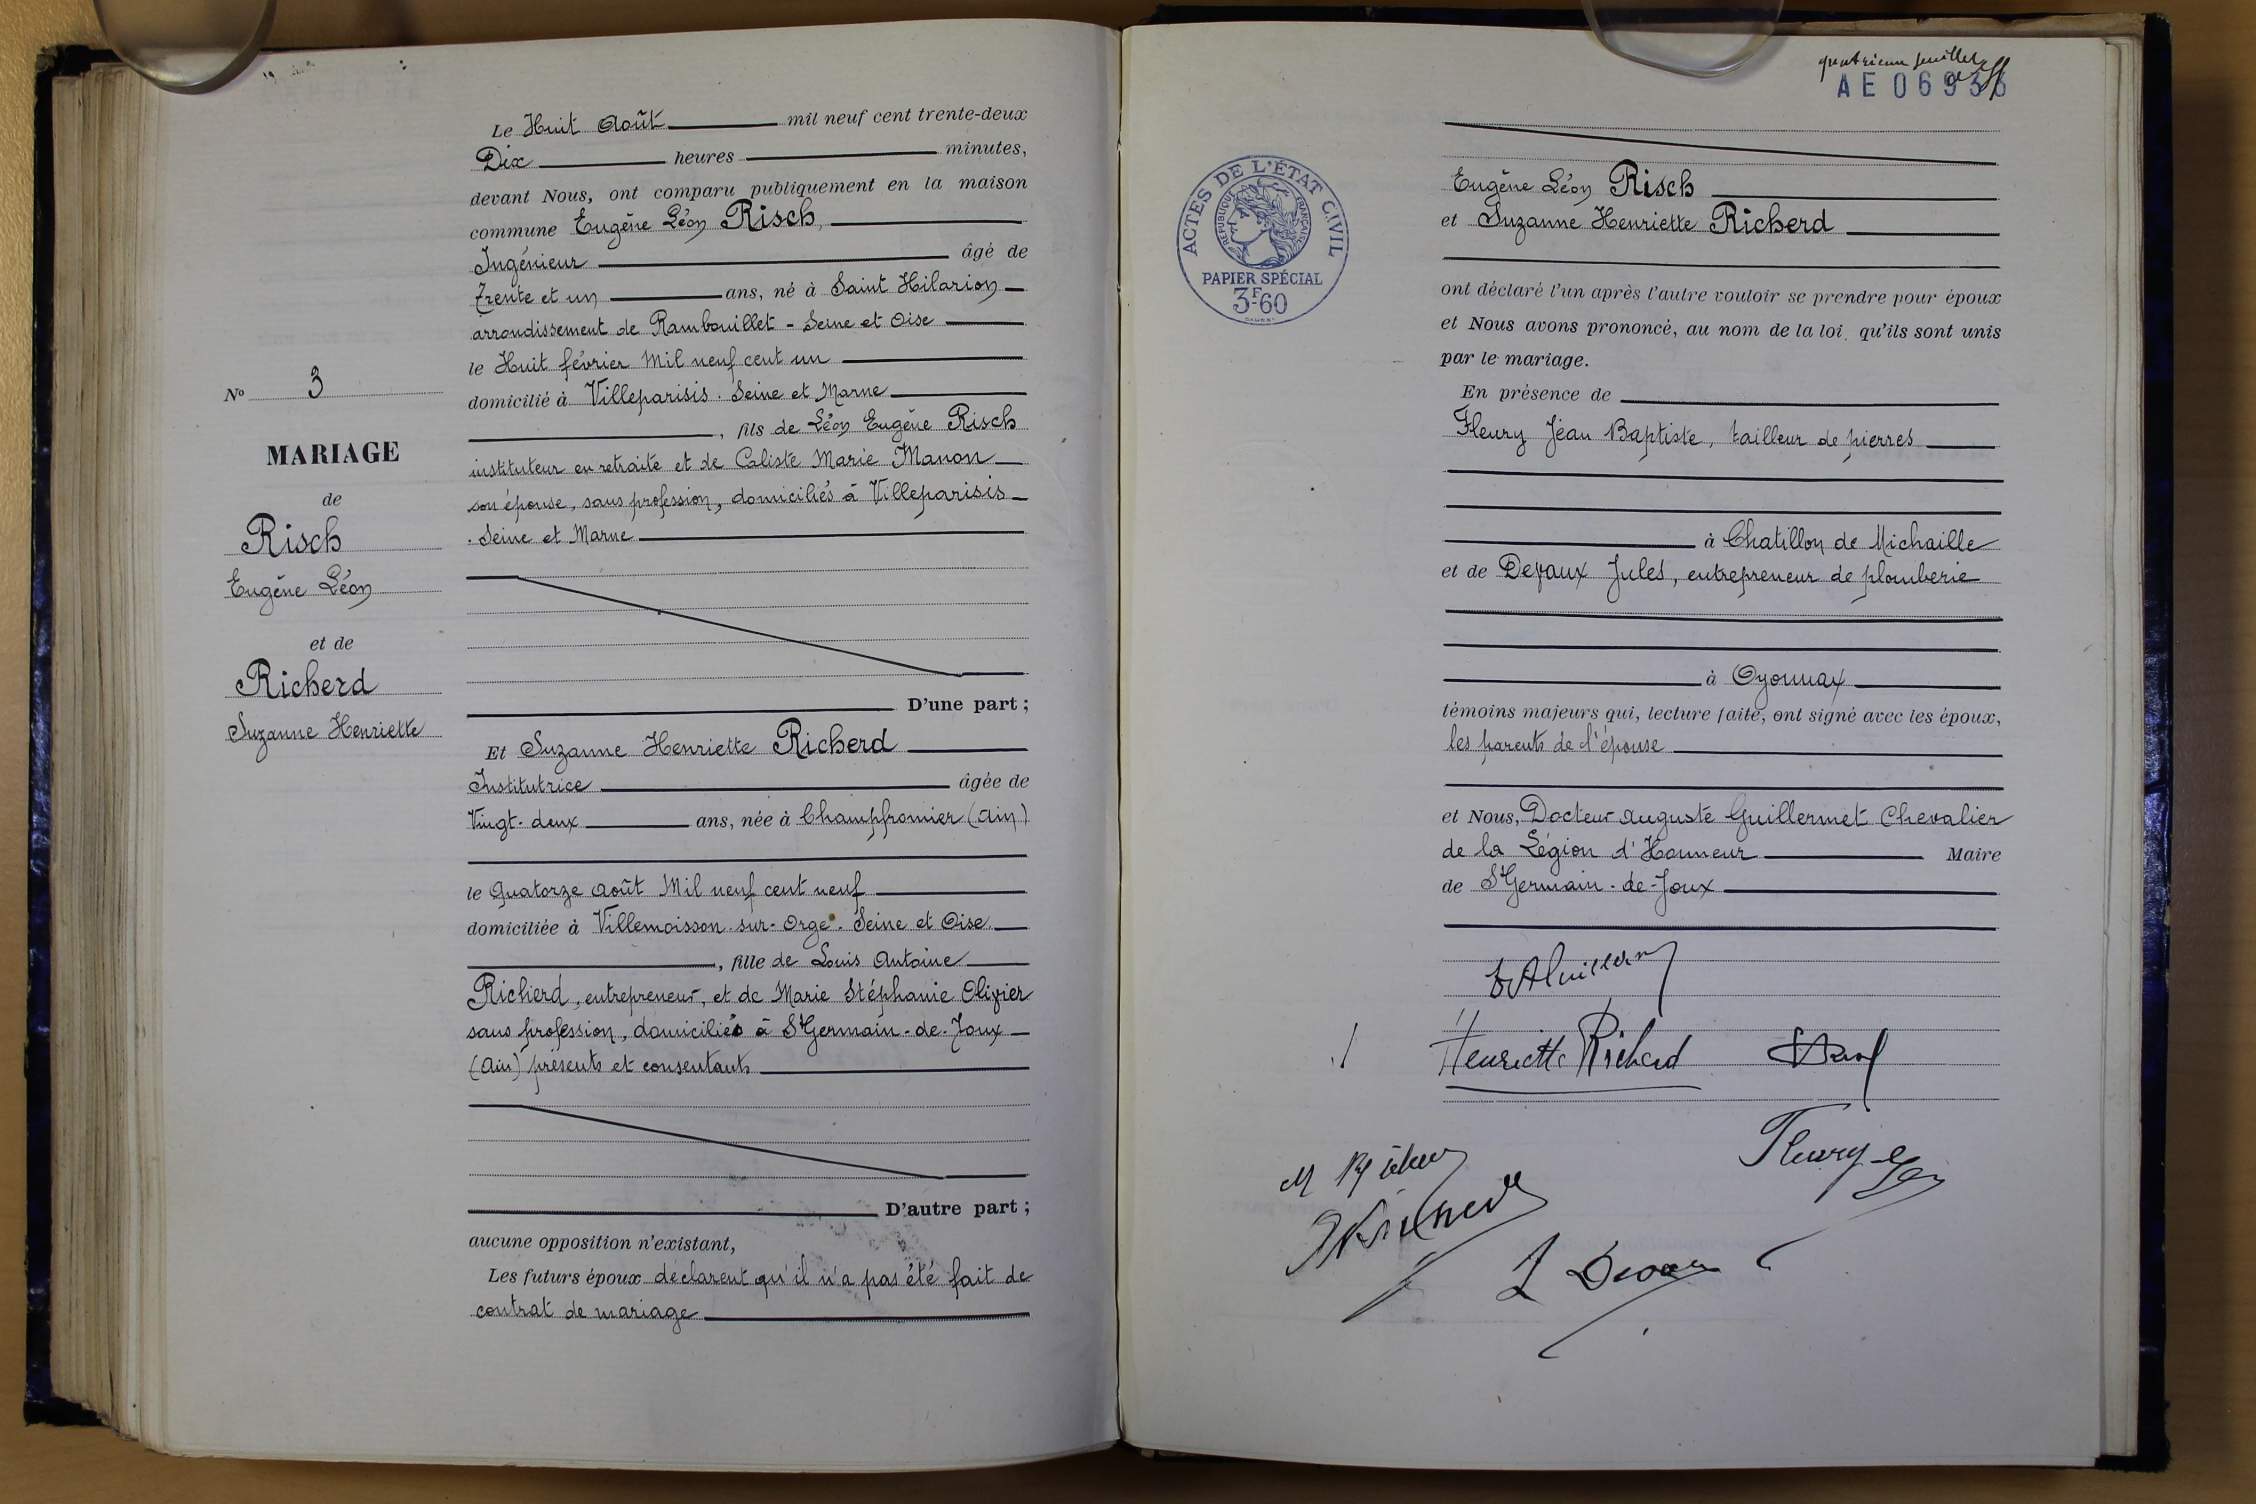 Le Huit Août mil neuf cent trente-deux
Dix heures minutes,
devant Nous, ont comparu publiquement en la maison
commune Eugène Léon Risch,
Ingénieur âgé de
Trente et un ans, né à Saint Hilarion
arrondissement de Rambouillet - Seine et Oise
le Huit février Mil neuf cent un
domicilié à Villeparisis. Seine et Marne
, fils de Léon Eugène Risch
instituteur en retraite et de Caliste Marie Manon
son épouse, sans profession, domiciliés à Villeparisis
. Seine et Marne
D'une part ;
Et Suzanne Henriette Richerd
Institutrice âgée de
Vingt-deux ans, née à Champfromier (Ain)
le Quatorze août Mil neuf cent neuf
domiciliée à Villemoisson-sur-Orge. Seine et Oise.
, fille de Louis Antoine
Richerd, entrepreneur, et de Marie Stéphanie Olivier
sans profession, domiciliés à St Germain-de-Joux
(Ain) présents et consentants
D'autre part ;
aucune opposition n'existant,
Les futurs époux déclarent qu'il n'a pas été fait de
contrat de mariage
No 3
MARIAGE
de
Risch
Eugène Léon
et de
Richerd
Suzanne Henriette
quatrième feuillet
AE 06933
ACTES DE L'ÉTAT CIVIL
RÉPUBLIQUE FRANÇAISE
PAPIER SPÉCIAL
3F-60
Eugène Léon Risch
et Suzanne Henriette Richerd
ont déclaré l'un après l'autre vouloir se prendre pour époux
et Nous avons prononcé, au nom de la loi, qu'ils sont unis
par le mariage.
En présence de
Fleury Jean Baptiste, tailleur de pierres
à Chatillon de Michaille
et de Devaux Jules, entrepreneur de plomberie
à Oyonnax
témoins majeurs qui, lecture faite, ont signé avec les époux,
les parents de l'épouse
et Nous, Docteur Auguste Guillermet Chevalier
de la Légion d'Honneur Maire
de St Germain-de-Joux
Henriette Richerd
Fleury